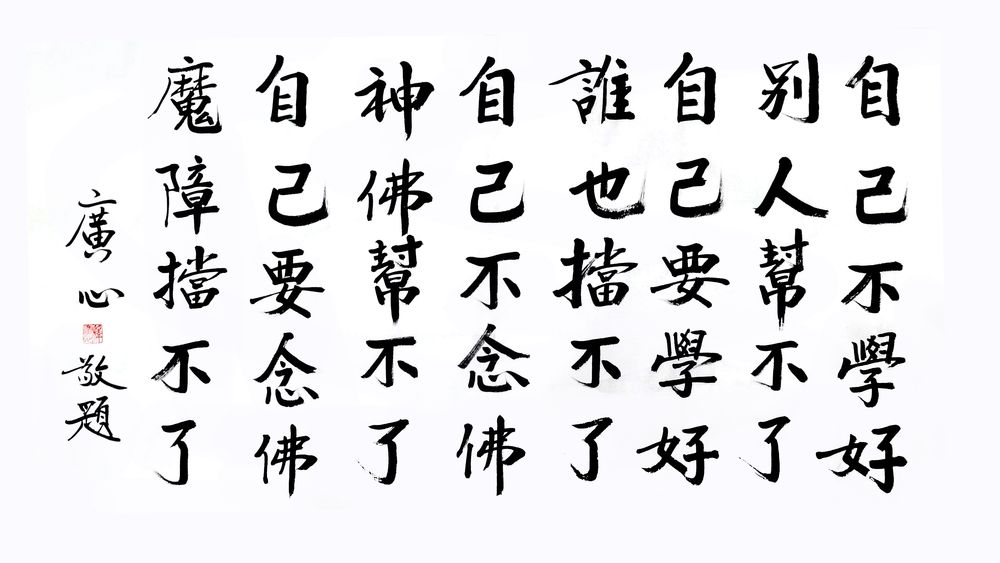 自己不學好
别人幫不了
自己要學好
誰也擋不了
自己不念佛
神佛幫不了
自己要念佛
魔障擋不了
廣心敬題